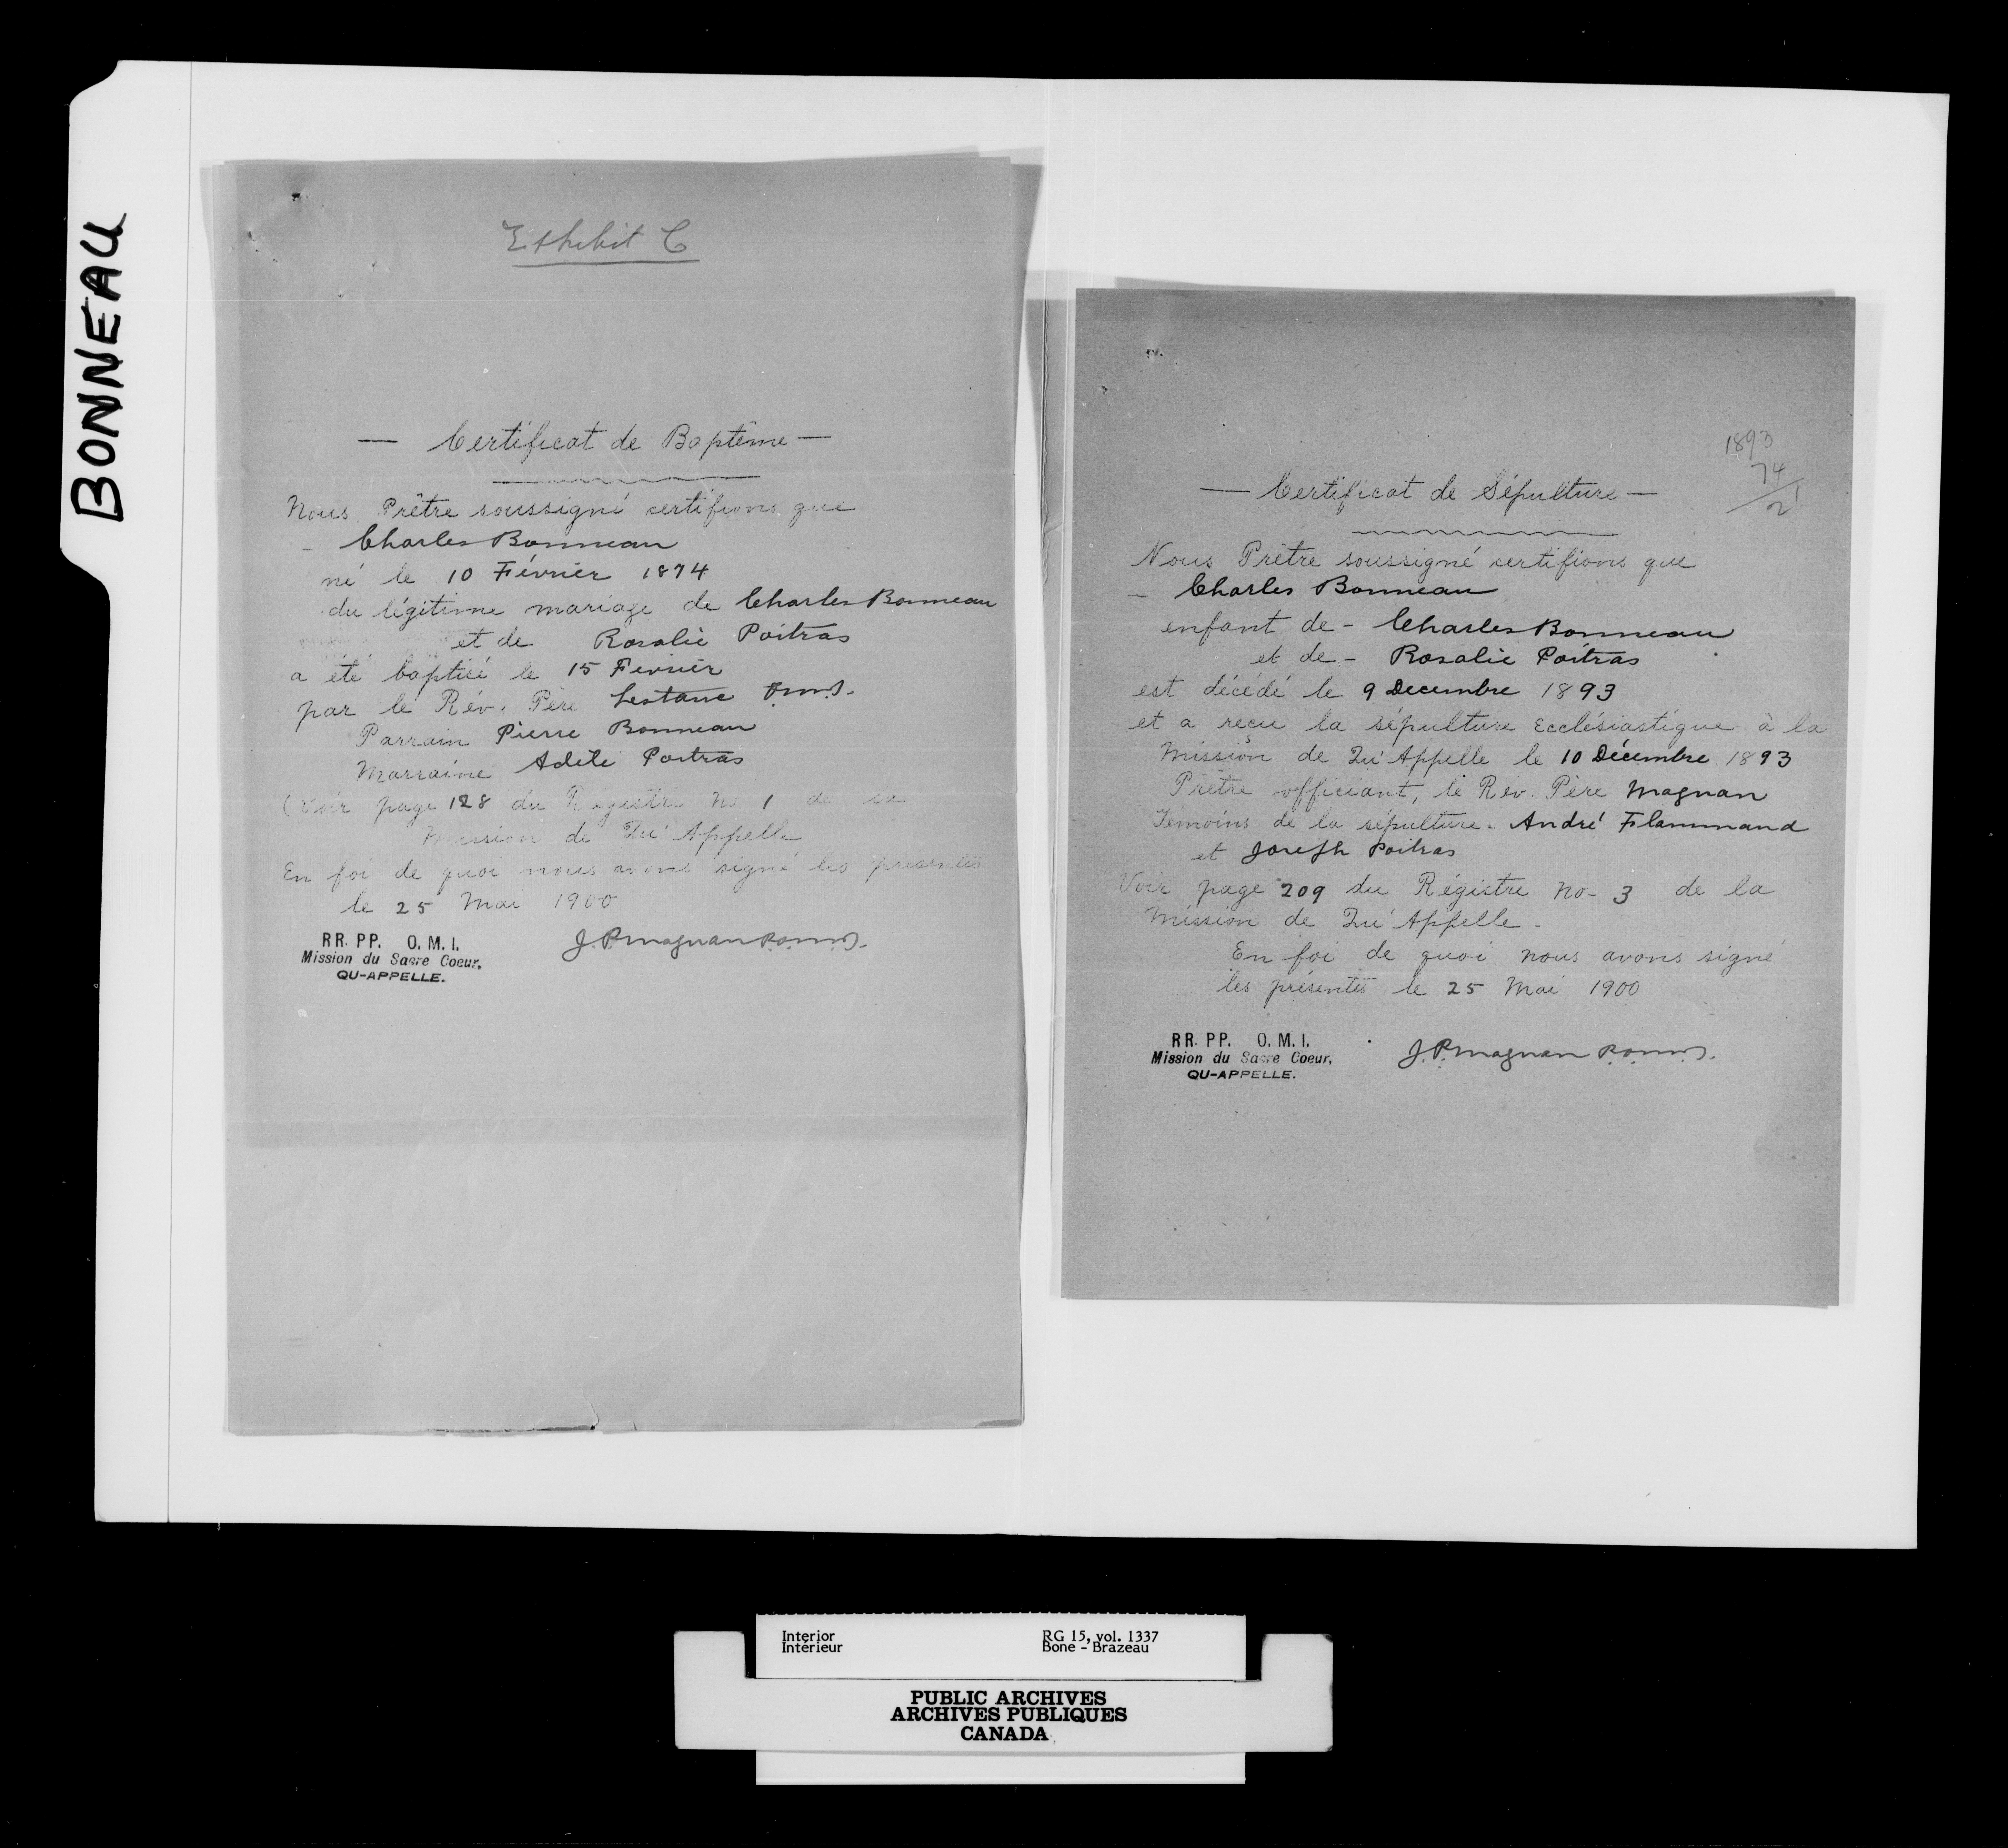 BONNEAU
Exhibit C
— Certificat de Baptême —
Nous Prêtre soussigné certifions que
- Charles Bonneau
né le 10 Février 1874
du légitime mariage de Charles Bonneau
et de Rosalie Poitras
a été baptisé le 15 Fevrier
par le Rév. Père Lestanc
Parrain Pierre Bonneau
Marraine Adèle Poitras
(Voir page 128 du Régistre No 1 de la
Mission de Qu'Appelle
En foi de quoi nous avons signé les presentes
le 25 Mai 1900
J.P. Magnan P.O.M.I.
RR. PP. O. M. I.
Mission du Sacre Coeur,
QU-APPELLE.
1893
74
21
— Certificat de Sépulture —
Nous Prêtre soussigné certifions que
- Charles Bonneau
enfant de - Charles Bonneau
et de - Rosalie Poitras
est décédé le 9 Decembre 1893
et a reçu la sépulture Ecclésiastique à la
Mission de Qu'Appelle le 10 Décembre 1893
Prêtre officiant, le Rév. Père Magnan
Temoins de la sépulture - André Flammand
et Joseph Poitras
Voir page 209 du Régistre No - 3 de la
Mission de Qu'Appelle -
En foi de quoi nous avons signé
les présentes le 25 Mai 1900
J.P. Magnan P.O.M.I.
RR. PP. O. M. I.
Mission du Sacre Coeur,
QU-APPELLE.
Interior RG 15, vol. 1337
Intérieur Bone - Brazeau
PUBLIC ARCHIVES
ARCHIVES PUBLIQUES
CANADA